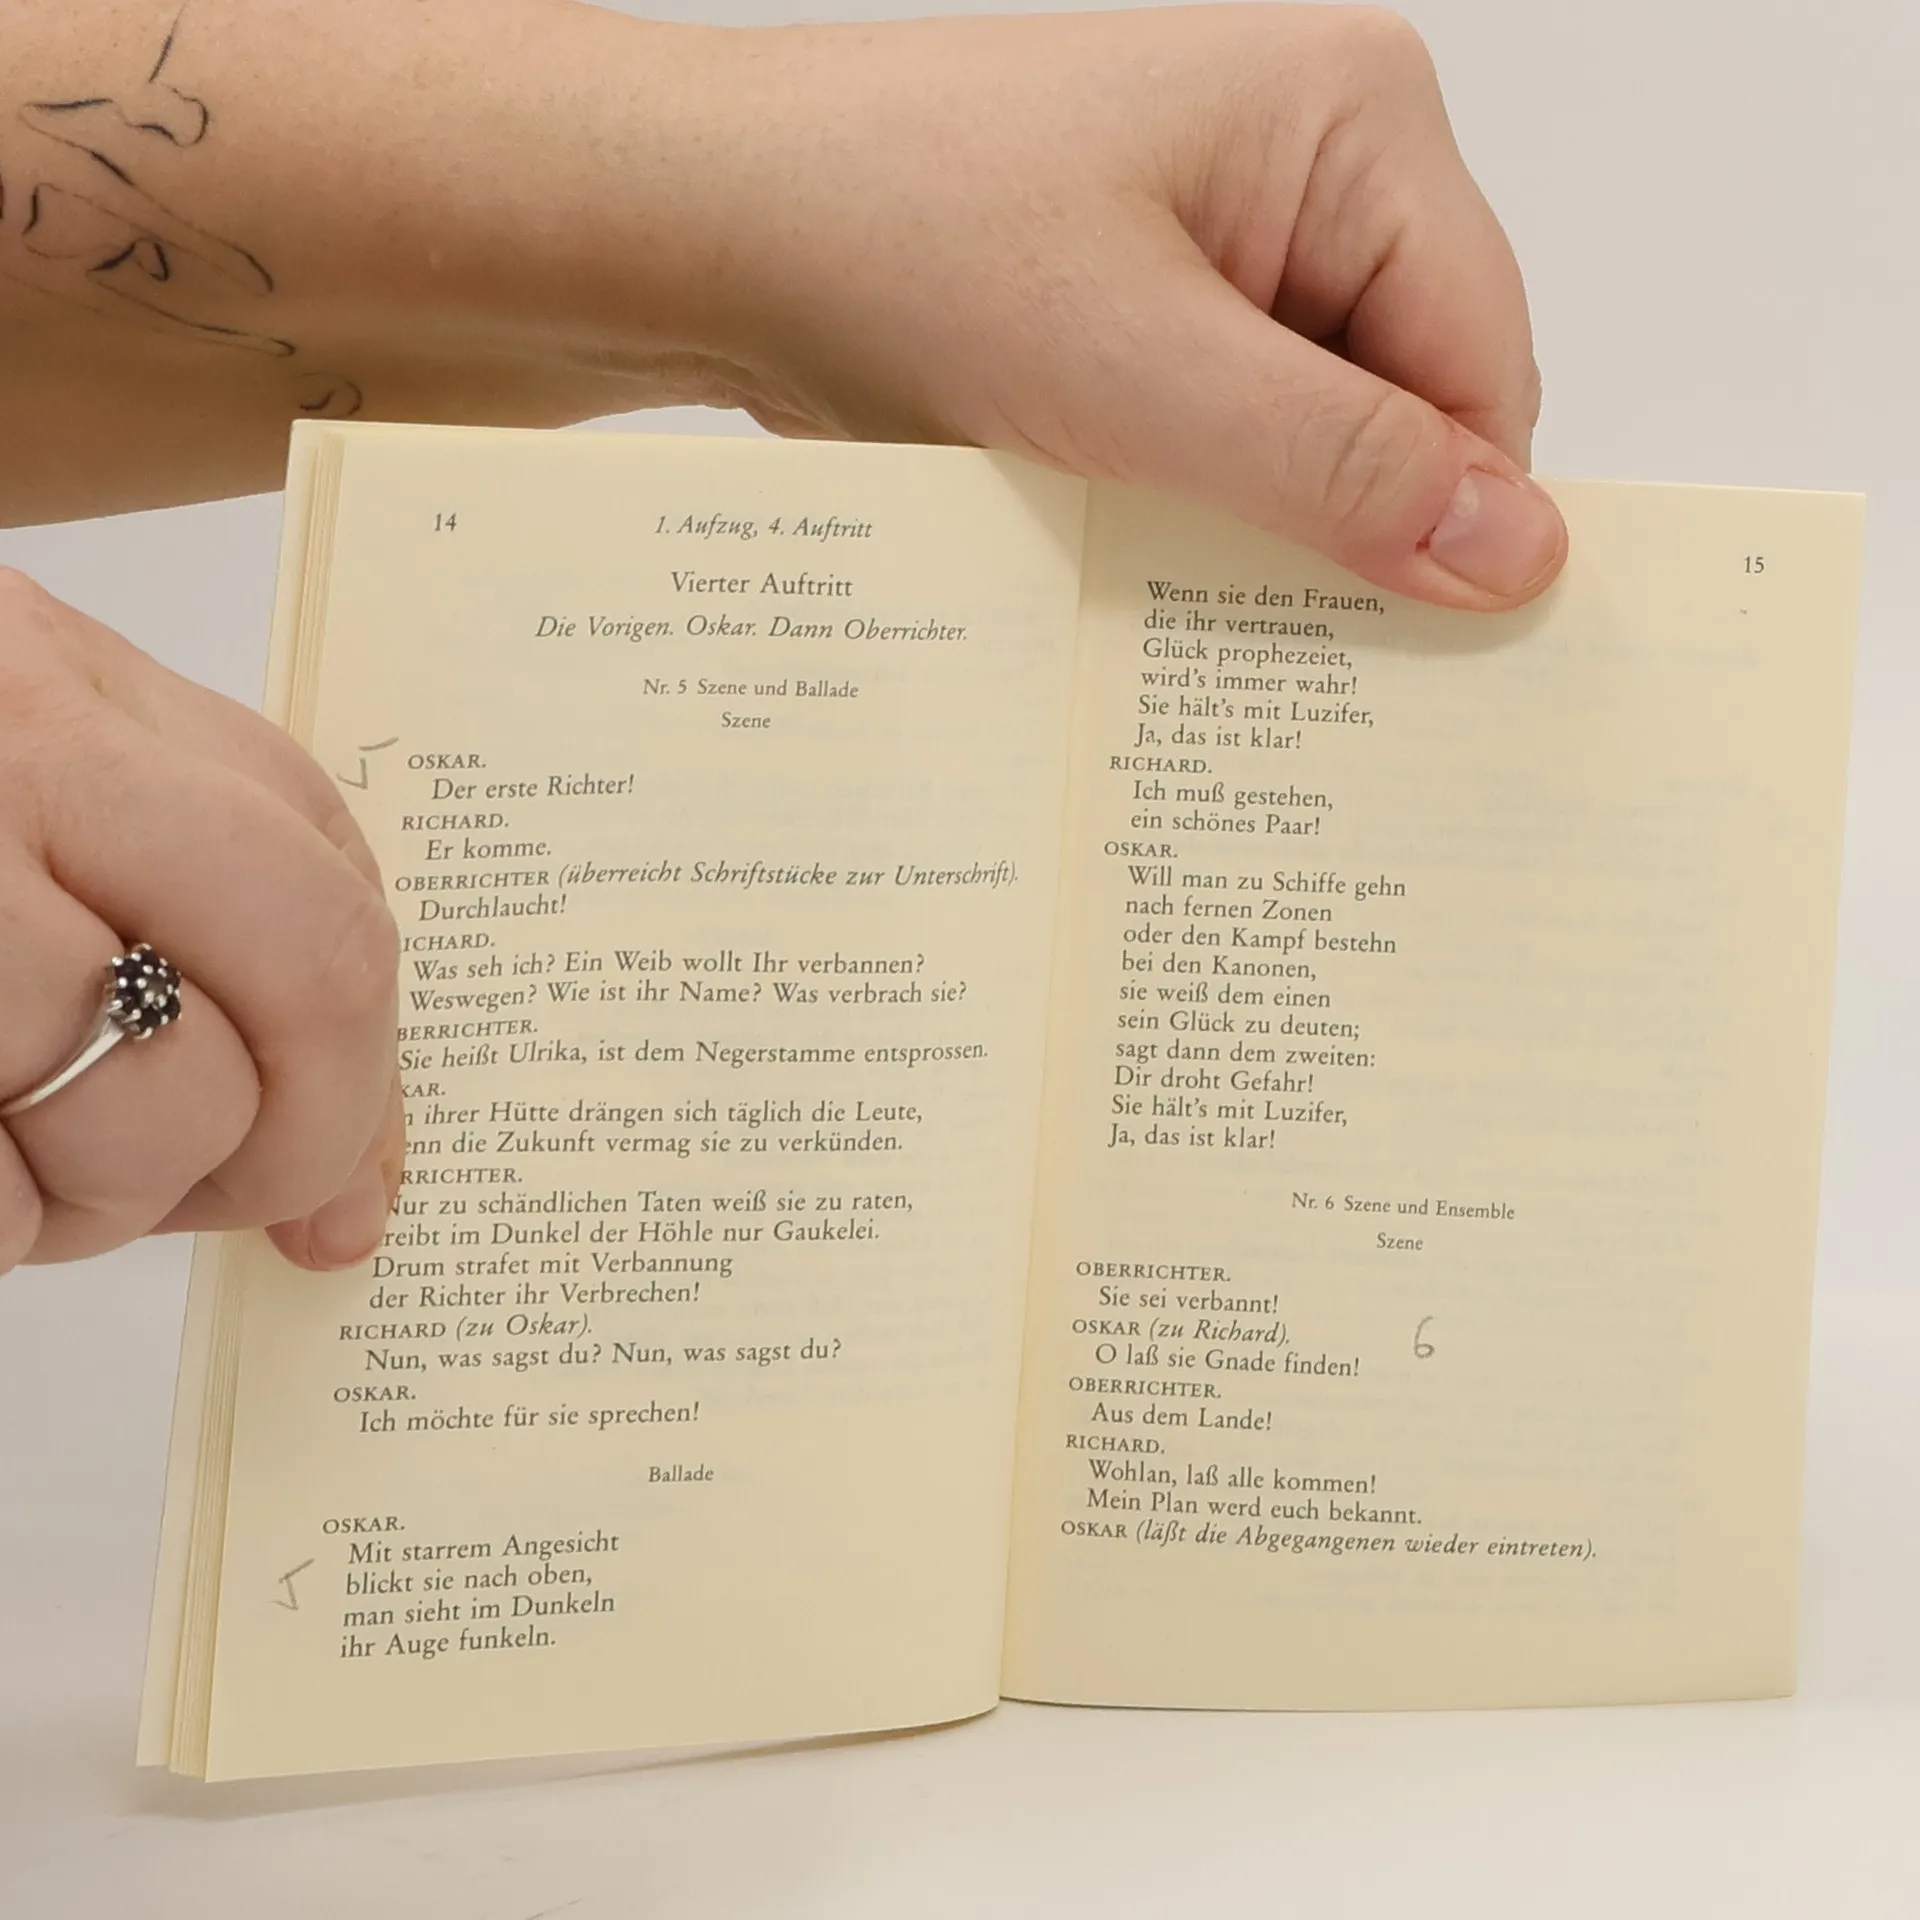 14
1. Aufzug, 4. Auftritt
Vierter Auftritt
Die Vorigen. Oskar. Dann Oberrichter.
Nr. 5 Szene und Ballade
Szene
OSKAR.
Der erste Richter!
RICHARD.
Er komme.
OBERRICHTER (überreicht Schriftstücke zur Unterschrift).
Durchlaucht!
ICHARD.
Was seh ich? Ein Weib wollt Ihr verbannen?
Weswegen? Wie ist ihr Name? Was verbrach sie?
BERRICHTER.
Sie heißt Ulrika, ist dem Negerstamme entsprossen.
KAR.
ihrer Hütte drängen sich täglich die Leute,
enn die Zukunft vermag sie zu verkünden.
RRICHTER.
Nur zu schändlichen Taten weiß sie zu raten,
reibt im Dunkel der Höhle nur Gaukelei.
Drum strafet mit Verbannung
der Richter ihr Verbrechen!
RICHARD (zu Oskar).
Nun, was sagst du? Nun, was sagst du?
OSKAR.
Ich möchte für sie sprechen!
Ballade
OSKAR.
Mit starrem Angesicht
blickt sie nach oben,
man sieht im Dunkeln
ihr Auge funkeln.
15
Wenn sie den Frauen,
die ihr vertrauen,
Glück prophezeiet,
wird's immer wahr!
Sie hält's mit Luzifer,
Ja, das ist klar!
RICHARD.
Ich muß gestehen,
ein schönes Paar!
OSKAR.
Will man zu Schiffe gehn
nach fernen Zonen
oder den Kampf bestehn
bei den Kanonen,
sie weiß dem einen
sein Glück zu deuten;
sagt dann dem zweiten:
Dir droht Gefahr!
Sie hält's mit Luzifer,
Ja, das ist klar!
Nr. 6 Szene und Ensemble
Szene
OBERRICHTER.
Sie sei verbannt!
OSKAR (zu Richard).
O laß sie Gnade finden! 6
OBERRICHTER.
Aus dem Lande!
RICHARD.
Wohlan, laß alle kommen!
Mein Plan werd euch bekannt.
OSKAR (läßt die Abgegangenen wieder eintreten).